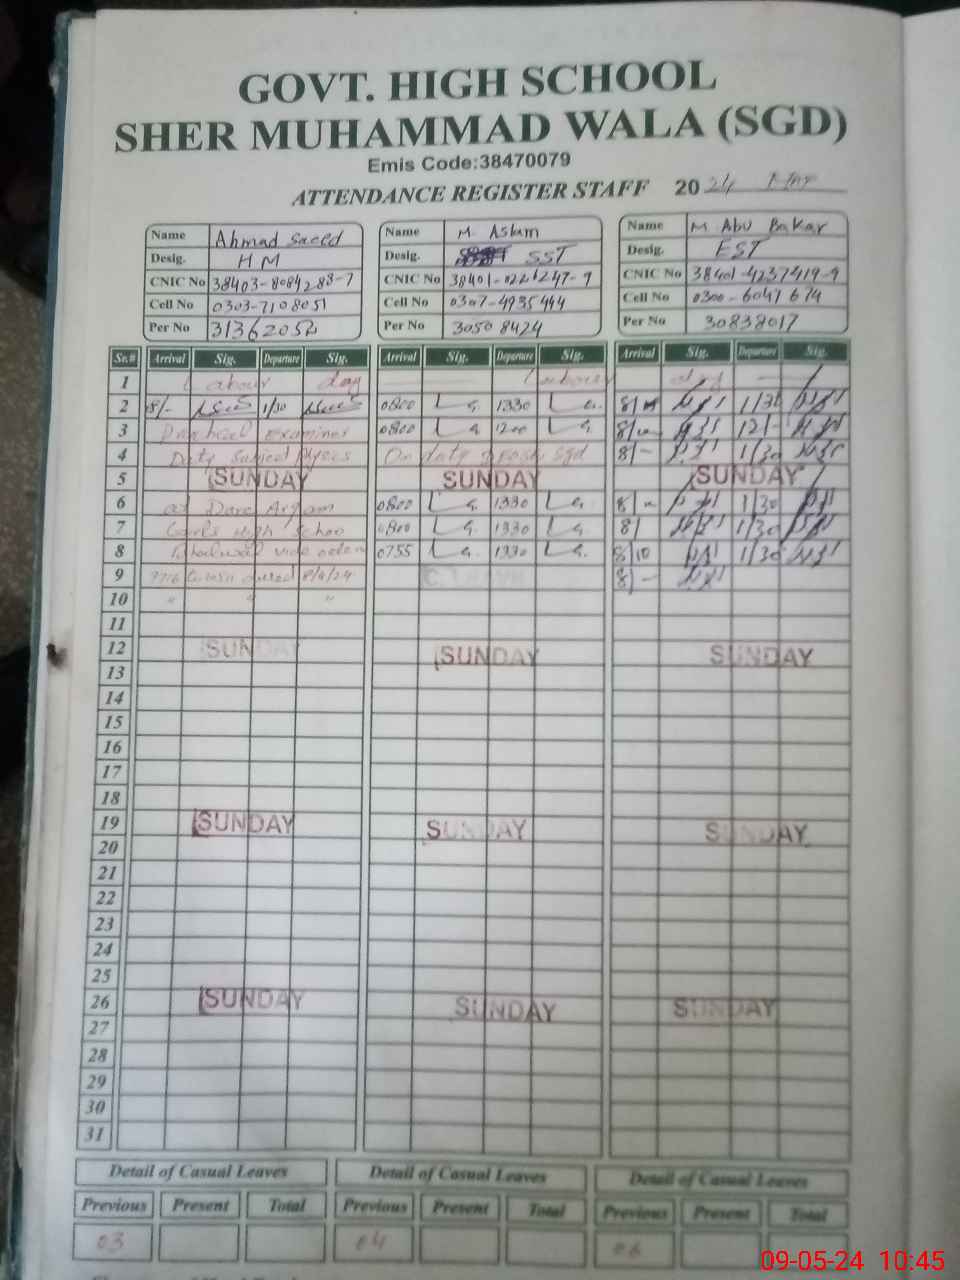 GOVT. HIGH SCHOOL
SHER MUHAMMAD WALA (SGD)
Emis Code:38470079
ATTENDANCE REGISTER STAFF 2024
Name Ahmad Saeed Name M. Aslam Name M. Abu Bakar
Desig. HM Desig. SST Desig. EST
CNIC No 38403-8084288-7 CNIC No 38401-0221247-9 CNIC No 38401-4237419-9
Cell No 0303-7108051 Cell No 0307-4935444 Cell No 0300-6047674
Per No 31362052 Per No 30508424 Per No 30838017
Sr.# Arrival Sig. Departure Sig. Arrival Sig. Departure Sig. Arrival Sig. Departure Sig.
1 Labour day Labour day
2 8/- 1/30 0800 1330 8/ 1/30
3 Practical Examiner 0800 1200 8/ 12/-
4 Duty On duty Sgd 8/- 1/30
5 SUNDAY SUNDAY SUNDAY
6 at Dare Arqam 0800 1330 8/ 1/30
7 Girls High School 0800 1330 8/ 1/30
8 Bhalwal vide order 0755 1330 8/10 1/30
9 dated 8/-
10 " " "
11
12 SUNDAY SUNDAY SUNDAY
13
14
15
16
17
18
19 SUNDAY SUNDAY SUNDAY
20
21
22
23
24
25
26 SUNDAY SUNDAY SUNDAY
27
28
29
30
31
Detail of Casual Leaves Detail of Casual Leaves Detail of Casual Leaves
Previous Present Total Previous Present Total Previous Present Total
03 04 06
09-05-24 10:45